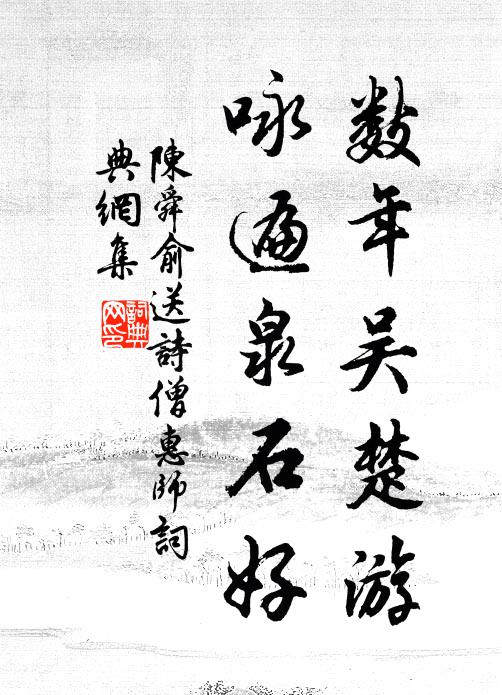 数年吴楚游
咏遍泉石好
陳舜俞送詩僧惠師詞
典網集
詞典
网印